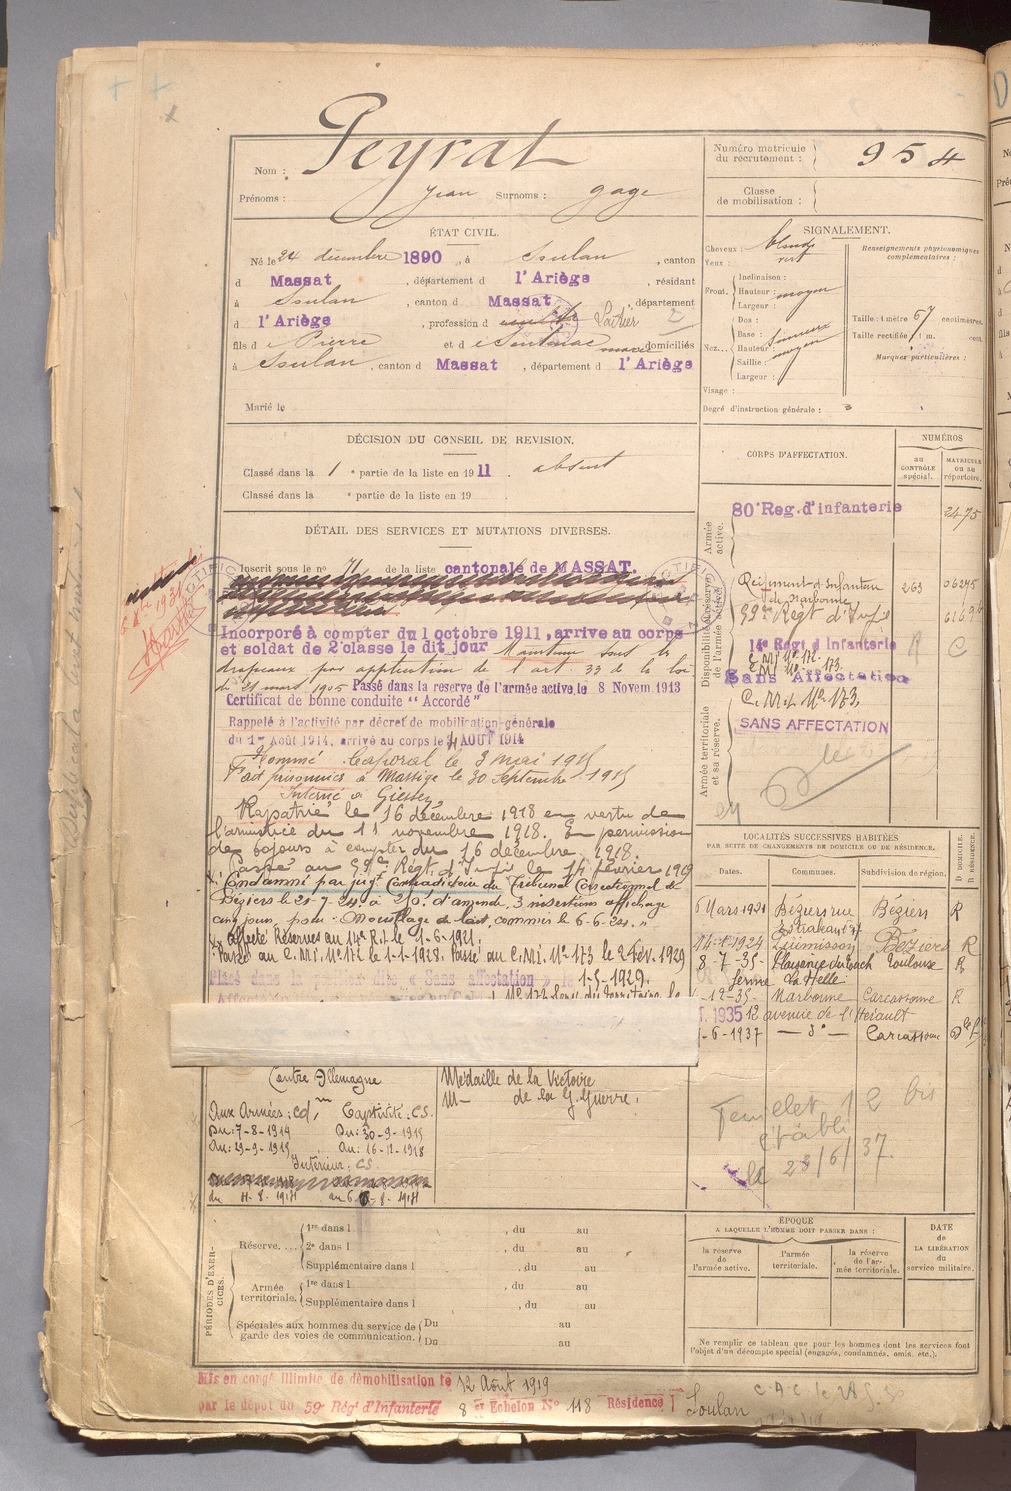 Nom : Peyrat
Prénoms : Jean Surnoms : gage
Numéro matricule du recrutement : 954
Classe de mobilisation :
ÉTAT CIVIL.
Né le 24 décembre 1890, à Soulan, canton
d Massat, département d l'Ariège, résidant
à Soulan, canton d Massat, département
d l'Ariège, profession d Laitier
fils d e Pierre et d e Sentenac marie domiciliés
à Soulan, canton d Massat, département d l'Ariège
Marié le
SIGNALEMENT.
Cheveux : blonds
Yeux : vert
Front. Inclinaison :
Hauteur : moyen
Largeur :
Nez... Dos :
Base :
Hauteur :
Saillie : moyen
Largeur :
Visage :
Renseignements physionomiques complémentaires :
Taille : 1 mètre 67 centimètres.
Taille rectifiée : 1 m. cent.
Marques particulières :
Degré d'instruction générale : 3
DÉCISION DU CONSEIL DE REVISION.
Classé dans la 1e partie de la liste en 1911. absent
Classé dans la e partie de la liste en 19
DÉTAIL DES SERVICES ET MUTATIONS DIVERSES.
Inscrit sous le n° 71 de la liste cantonale de MASSAT.
Incorporé à compter du 1 octobre 1911, arrive au corps
et soldat de 2e classe le dit jour Maintenu sous les
drapeaux par application de l'art. 33 de la loi
du 21 mars 1905 Passé dans la reserve de l'armée active, le 8 Novem. 1913
Certificat de bonne conduite "Accordé"
Rappelé à l'activité par décret de mobilisation générale
du 1er Août 1914, arrivé au corps le 4 AOUT 1914
Nommé Caporal le 3 mai 1915
Fait prisonnier à Massige le 30 Septembre 1915
Interné à Giessen
Rapatrié le 16 décembre 1918 en vertu de
l'armistice du 11 novembre 1918. En permission
de 60 jours à compter du 16 décembre 1918.
Passé au 59e Régt d'Infie le 14 février 1919
Condamné par jugt Contradictoire du Tribunal Correctionnel de
Béziers le 21-7-24 à 250f d'amende, 3 insertions affichage
cinq jours, pour : Mouillage de lait, commis le 6-6-24. "
Affecté Réserves au 14e R.I. le 1-6-1921.
Passé au C.M.I. N° 172 le 1-1-1928. Passé au C.M.I. N° 173 le 2 Fév. 1929
Placé dans la position dite « Sans affectation » le 1-5-1929.
Contre Allemagne
Aux Armées : Cd
Du : 7-8-1914
Au : 29-9-1915
Captivité : CS.
Du : 30-9-1915
Au : 16-12-1918
Intérieur : CS
du 4-8-1914 au 6-8-1914
Médaille de la Victoire
M— de la G. Guerre.
CORPS D'AFFECTATION.
NUMÉROS
au CONTRÔLE spécial.
MATRICULE ou au répertoire.
Armée active.
80e Reg. d'infanterie 2475
Disponibilité et réserve de l'armée active.
Régiment d'Infanterie de Narbonne 263 06275
59me Régt d'Infie
14e Régt d'Infanterie
C.M.I. N° 172.
C.M.I. N° 173.
Sans Affectation
Armée territoriale et sa réserve.
C.M.I. N° 173.
SANS AFFECTATION
LOCALITÉS SUCCESSIVES HABITÉES
PAR SUITE DE CHANGEMENTS DE DOMICILE OU DE RÉSIDENCE.
Dates. Communes. Subdivision de région. D DOMICILE. R RÉSIDENCE.
6 Mars 1921 Béziers rue Béziers R
14-1-1924 Puimisson Béziers R
8-7-35- Plaisance du Touch Toulouse R
ferme La Helle
-12-35- Narbonne Carcassonne R
1935 12 avenue de l'Hérault
-6-1937 — do — Carcassonne
Feuillet 12 bis
établi
le 23/6/37.
PÉRIODES D'EXERCICES.
Réserve.... 1re dans l , du au
2e dans l , du au
Supplémentaire dans l , du au
Armée territoriale. 1re dans l , du au
Supplémentaire dans l , du au
Spéciales aux hommes du service de garde des voies de communication. Du au
Du au
ÉPOQUE
A LAQUELLE L'HOMME DOIT PASSER DANS :
la réserve de l'armée active.
l'armée territoriale.
la réserve de l'armée territoriale.
DATE DE LA LIBÉRATION du service militaire.
Ne remplir ce tableau que pour les hommes dont les services font l'objet d'un décompte spécial (engagés, condamnés, omis, etc.).
Mis en congé illimité de démobilisation le 12 Août 1919
par le dépot du 59e Régt d'Infanterie 8e Echelon N° 118 Résidence : Soulan